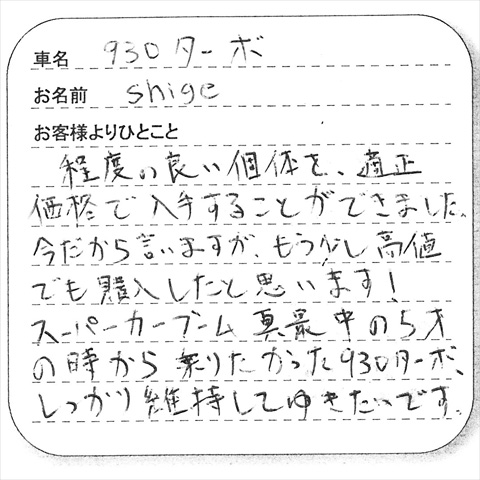 車名 930ターボ
お名前 shige
お客様よりひとこと
程度の良い個体を、適正
価格で入手することができました。
今だから言いますが、もう少し高値
でも購入したと思います!
スーパーカーブーム真最中の5才
の時から乗りたかった930ターボ、
しっかり維持してゆきたいです。